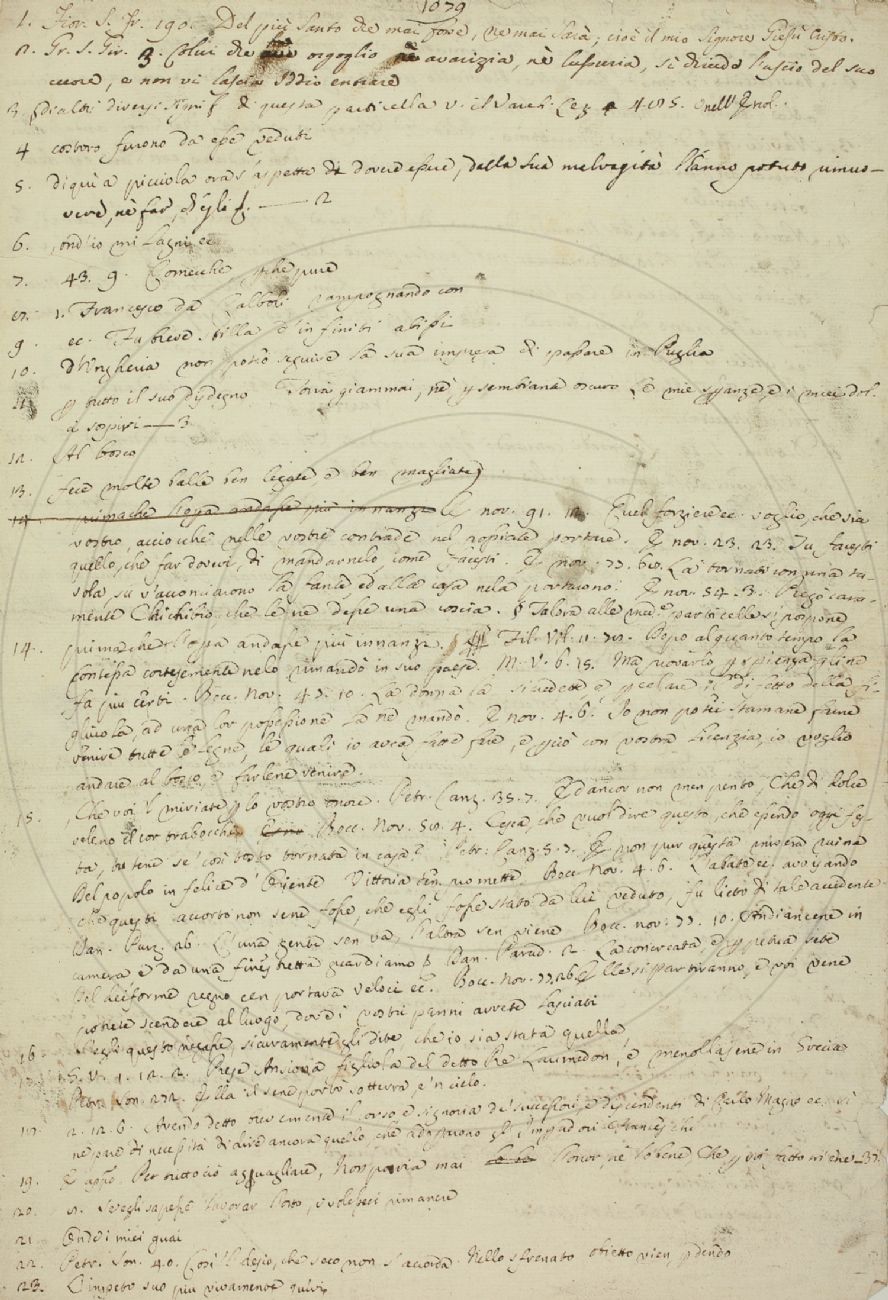 1079
1. Fior. S. Fr. 190. Del più Santo che mai fosse, ne mai Sarà; cioè il mio Signore Giesù Cristo.
2. Gr. S. Gir. 3. Colui che orgoglio, nè avarizia, nè lussuria, si chiude l'uscio del suo
cuore, e non vi lascia Iddio entrare
3 Di altri diversi signif. di questa particella v. il Varch. Lez. 405. nell'
4 costoro furono da esse veduti
5. di qui a picciola ora s'aspetta di dover essere, della sua malvagità l'hanno potuto rimuo-
vere, nè far, ch'egli 2
6. ond'io mi Lagni ec
7. 43. 9. Comecche, pure
1. Francesco da Calboli campognando con
9. ec. Tu breve stilla e 'n finiti abissi
10. d'Ungheria non potè seguire la sua impresa di passare in Puglia
11. tutto il suo disdegno Torrà giammai, nè sembiana oscuro Le mie speranze, e i miei dol.
ci sospiri — 3
12. Al bosco
13. fece molte balle ben legate, e ben magliate
14. primache l'opra andasse più innanzi nov. 91. 12. Quel forziere ec. voglio, che sia
vostro, acciocchè nelle vostre contrade nel possiate portare. E nov. 23. 23. Tu facesti
quello, che far dovevi, di mandarnelo, come facesti. E nov. 77. 60. La tornati con una ta-
vola, su v'acconciarono la fante, ed alla casa nela portarono. E nov. 54. 3. Pregò cara-
mente Chichibio, che le ne desse una coscia. § Talora alle med.e particelle si pospone
14. primache l'opra andasse più innanzi. Fil. Vil. 11. 72. Dopo alquanto tempo la
Contessa cortesemente nelo rimandò in suo paese. M. V. 6. 15. Ma provarlo gli ne
fa più certi. Bocc. Nov. 47. 10. La donna la si vedette e pelare il difetto della fi-
gliuola, ad una lor possessione la ne mandò. E nov. 4. 6. Io non potei stamane farne
venire tutte le legne, le quali io avea fatte fare, e perciò con vostra licenzia, io voglio
andare al bosco, e farlene venire.
15. Che voi 'l miriate lo vostro onore. Petr. Canz. 35. 7. Ed ancor non men pento, Che di dolce
veleno il cor trabocchi. Bocc. Nov. 50. 4. Cesca, che vuol dire questo, che essendo oggi fes-
ta, tu tene se' così tosto tornata in casa? Petr. Canz. 5. 7. E non pur questa misera ruina
Del popolo infelice d'Oriente Vittoria ten promette. Bocc. Nov. 4. 6. L'abate ec. avvisando
che questi accorto non sene fosse, che egli fosse stato da lui veduto, fu lieto di tale accidente.
Dan. Purg. 26. L'una gente sen va, l'altra sen viene. Bocc. nov. 77. 10. Andiancene in
camera e da una finestretta guardiamo. Dan. Parad. 2. La concreata, e perpetua sete
Del deiforme regno cen portava Veloci ec. Bocc. Nov. 77. 26. Elle si partiranno, e voi vene
potrete scendere al luogo, dove i vostri panni avrete lasciati
16. Segli questo negasse, sicuramente gli dite, che io sia stata quella
17. G. V. 1. 12. 2. Prese Ansiona figliuola del detto Re Laumedon, e menollasene in Grecia
Petr. Son. 272. Ella 'l sene portò sotterra, e 'n cielo.
2. 12. 6. Avendo detto brevemente il corso e signoria de' successori, e discendenti di Carlo Magno ec. ci
ne pare di necessità di dire ancora quello, che adoperarono gl'Imperadori Franceschi
19. E appo. Per tutto ciò agguagliare, Non poria mai l'onor, nè lo bene, Che fatto m'ène 37
20. S'egli sapesse lavorar l'orto, e volesseci rimanere
21. Ond'i miei guai
22. Petr. Son. 40. Così 'l desio, che seco non s'accorda Nello sfrenato obietto vien perdendo
23. L'impeto suo più vivamente quivi